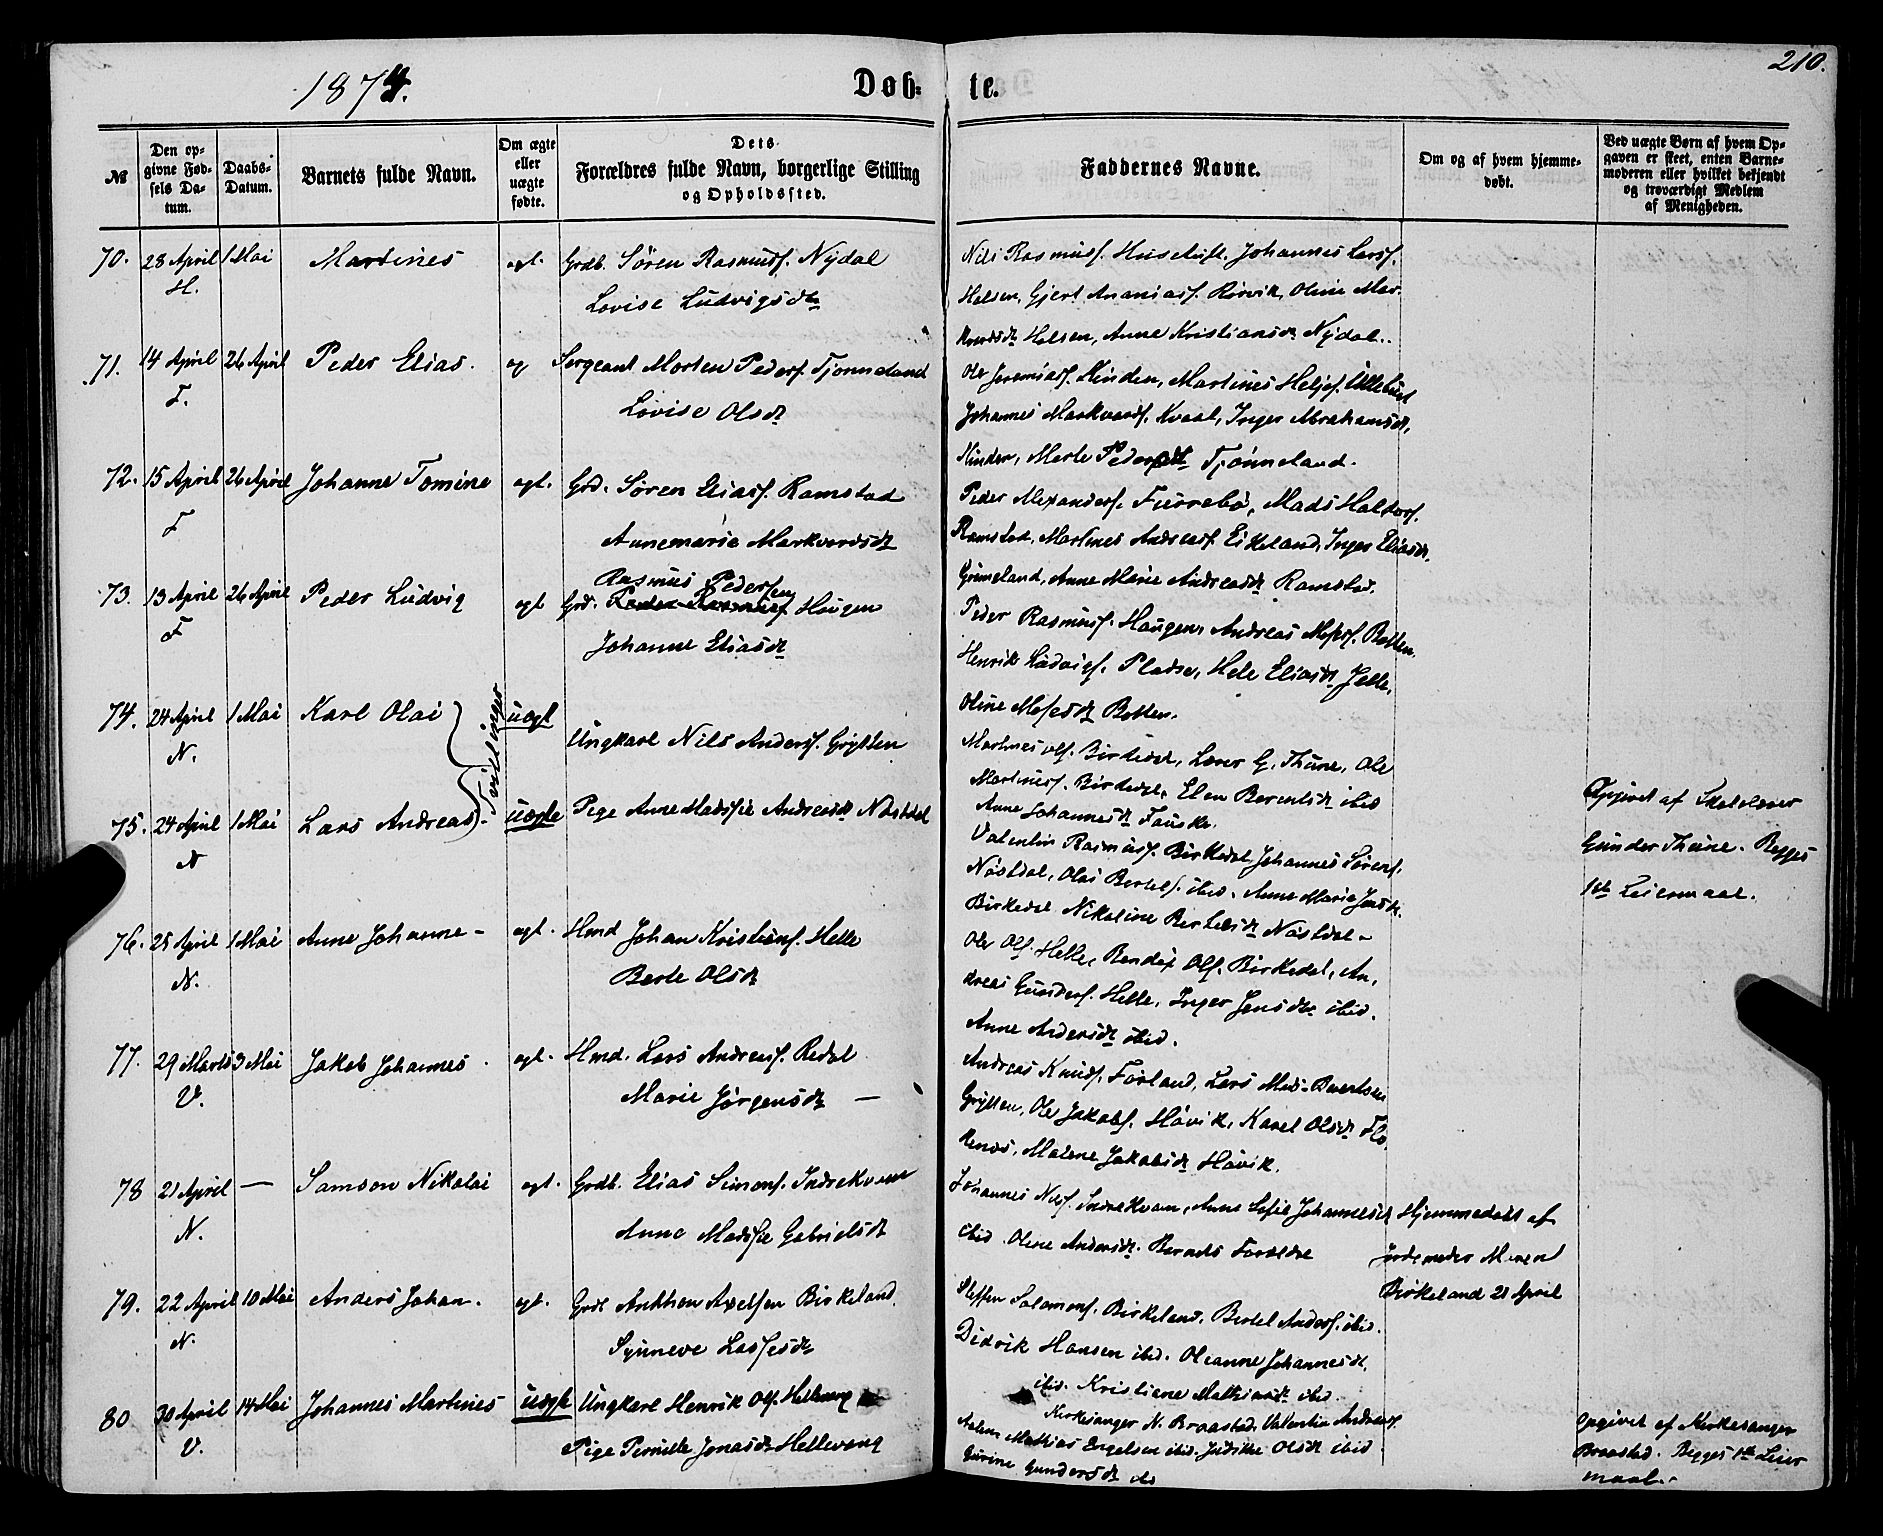 210.
1874.
Døb-te.
№
Den op-
givne Fød-
sels Da-
tum.
Daabs-
Datum.
Barnets fulde Navn.
Om ægte
eller
uægte
fødte.
Dets
Forældres fulde Navn, borgerlige Stilling
og Opholdssted.
Faddernes Navne.
Om og af hvem hjemme-
døbt.
Ved uægte Børn af hvem Op-
gaven er skeet, enten Barne-
moderen eller hvilket bekjendt
og troværdigt Medlem
af Menigheden.
70. 28 April 1 Mai Martines egt. Grdb. Søren Rasmusf. Nydal
H.
Lovise Ludvigsdtr
Nils Rasmusf. Husetuft. Johannes Larsf.
Helsen, Gjert Ananiasf. Rørvik, Oline Mar-
kvardsdtr Helsen, Anne Kristiansdtr Nydal.
71. 14 April 26 April Peder Elias. eg Sergeant Morten Pedersf. Tjønneland
F.
Lovise Olsdtr
Ole Jeremiasf. Hinden, Martines Heljef.
Johannes Markvardf. Kvaal, Inger Abrahamsdtr,
Hinden, Merte Pedersdtr Tjønneland.
72. 15 April 26 April Johanne Tomine egt. Grd. Søren Eliasf. Ramstad
F
Annemarie Markvardsdtr
Peder Alexandersf. Furrebø, Mads Haldorsf.
Ramstad, Martines Andreasf. Eikeland, Inger Eliasdtr,
Grimeland, Anne Marie Andreasdtr Ramstad.
73. 13 April 26 April Peder Ludvig egt Grd. Rasmus Pedersen Haugen
F
Johanne Eliasdtr
Peder Rasmusf. Haugen, Andreas Mosesf. Botten,
Henrik Ludvigf. Pladse, Hele Eliasdtr Jelle,
Oline Mosesdtr Botten.
74. 24 April 1 Mai Karl Olai uegt
N.
Tvillinger
Ungkarl Nils Andersf. Grytten
Martines Olf. Birkedal, Lærer G. Thune, Ole
Martinusf. Birkedal, Elen Berentsdtr ibid
Anne Johannesdtr Fauske.
75. 24 April 1 Mai Lars Andreas uegte Pige Anne Madssie Andreasdtr Nøstdal
N
Valentin Rasmusf. Birkedal, Johannes Sørenf.
Nøstdal, Olai Bertelf. ibid. Anne Marie Jensdtr.
Birkedal Nikoline Bertelsdtr Nøstdal
Opgivet af Skolelærer
Gunder Thune. Begges
1ste Leiermaal.
76. 25 April 1 Mai Anne Johanne - egt. Hmd Johan Kristianf. Helle
N.
Berte Olsdtr
Ole Olf. Helle, Bendix Olf. Birkedal, An-
dreas Gundersf. Helle, Inger Jensdtr ibid.
Anne Andersdtr ibid.
77. 29 Marts 3 Mai Jakob Johannes. egt. Hmd. Lars Andreasf. Redal
V.
Marie Jørgensdtr —
Andreas Knudsf. Førland, Lars Mads
Grytten, Ole Jakobf. Høvik, Karel Olsdtr Flo-
kenes, Malene Jakobsdtr Høvik.
78 21 April — Samson Nikolai egt. Grdb. Elias Simonf. Indrekvam
N.
Anne Madssie Gabrielsdtr
Johannes Nilsf. Indrekvam, Anne Sofie Johannesdtr
ibid. Oline Andersdtr. Barnets Forældre
Hjemmedøbt af
jordemoder Maren
Birkeland 21 April
79. 22 April 10 Mai Anders Johan. egt. Grdb Anthon Axelsen Birkeland
N.
Synneve Lassesdtr
Steffen Salomonf. Birkeland, Bertel Andersf. ibid.
Didrik Hansen ibid. Oleanne Johannesdtr.
ibid. Kristiane Mathiasdtr ibid.
80 30 April 14 Mai Johannes Martines uegte Ungkarl Henrik Olf. Hellevang
V.
Pige Pernille Jonasdtr Hellevang
Kirkesanger N. Braastad, Valentin Andersf.
Mathias Engelsen ibid. Judithe Olsdtr ibid
Gurine Gundersdtr do
Opgivet af Kirkesanger
Braastad. Begges 1ste Leier
maal.